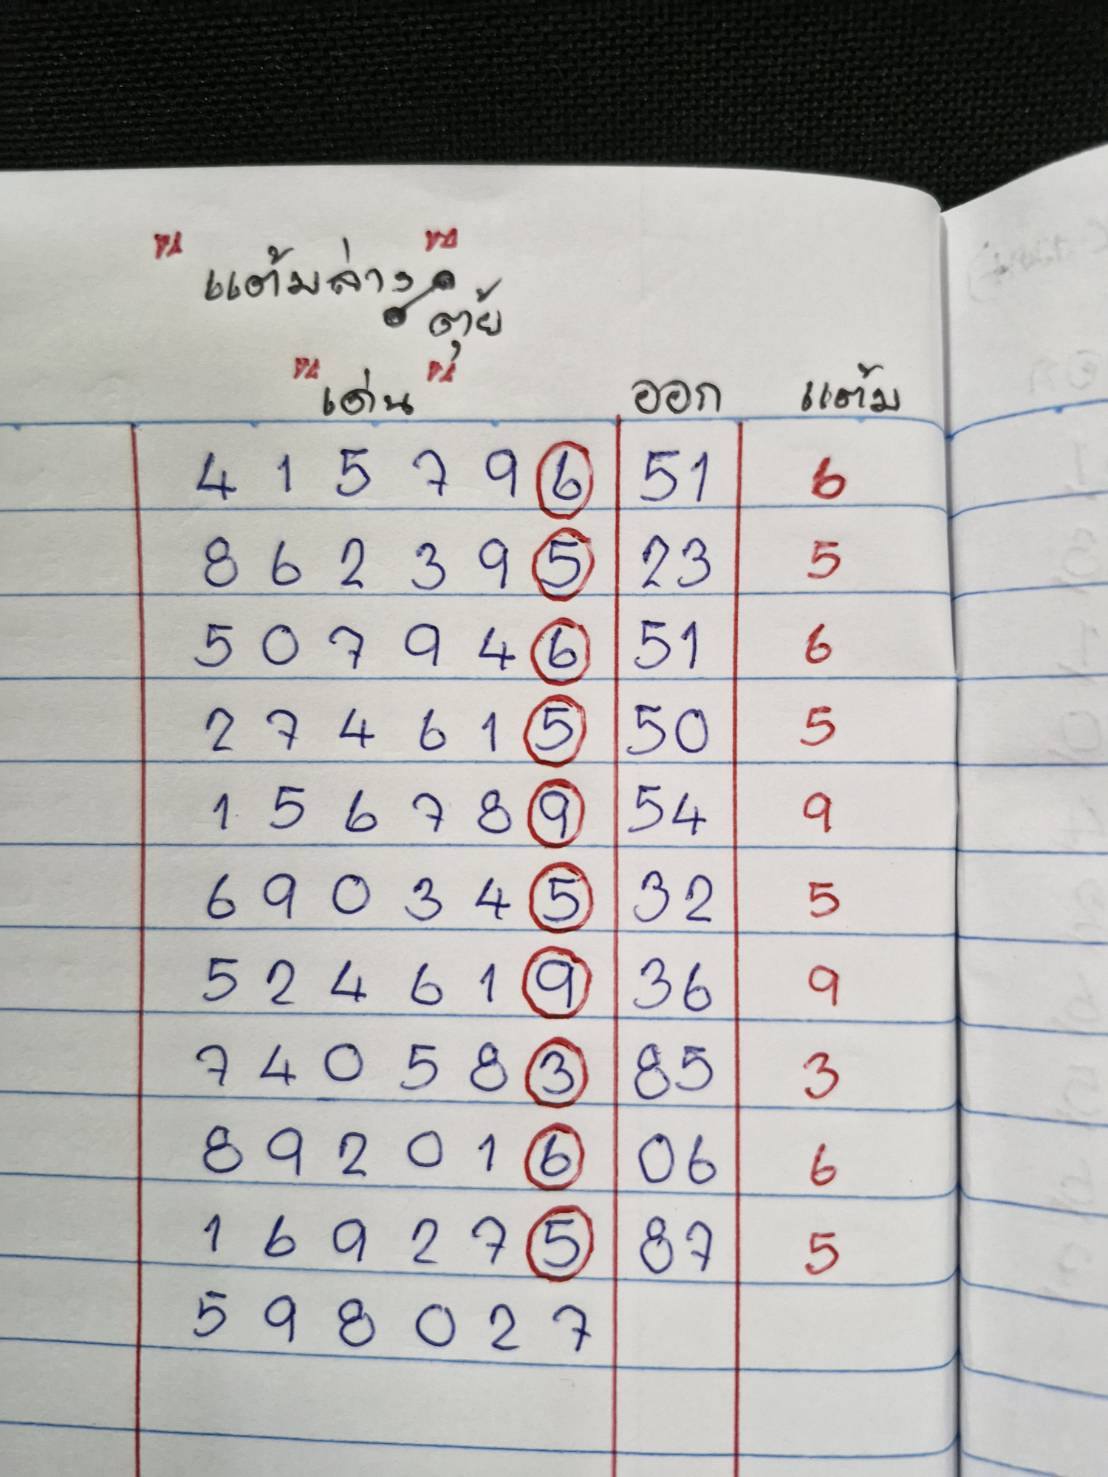 " แต้มล่าง "
ตุ้ย
" เด่น " ออก แต้ม
4 1 5 7 9 6 51 6
8 6 2 3 9 5 23 5
5 0 7 9 4 6 51 6
2 7 4 6 1 5 50 5
1 5 6 7 8 9 54 9
6 9 0 3 4 5 32 5
5 2 4 6 1 9 36 9
7 4 0 5 8 3 85 3
8 9 2 0 1 6 06 6
1 6 9 2 7 5 87 5
5 9 8 0 2 7